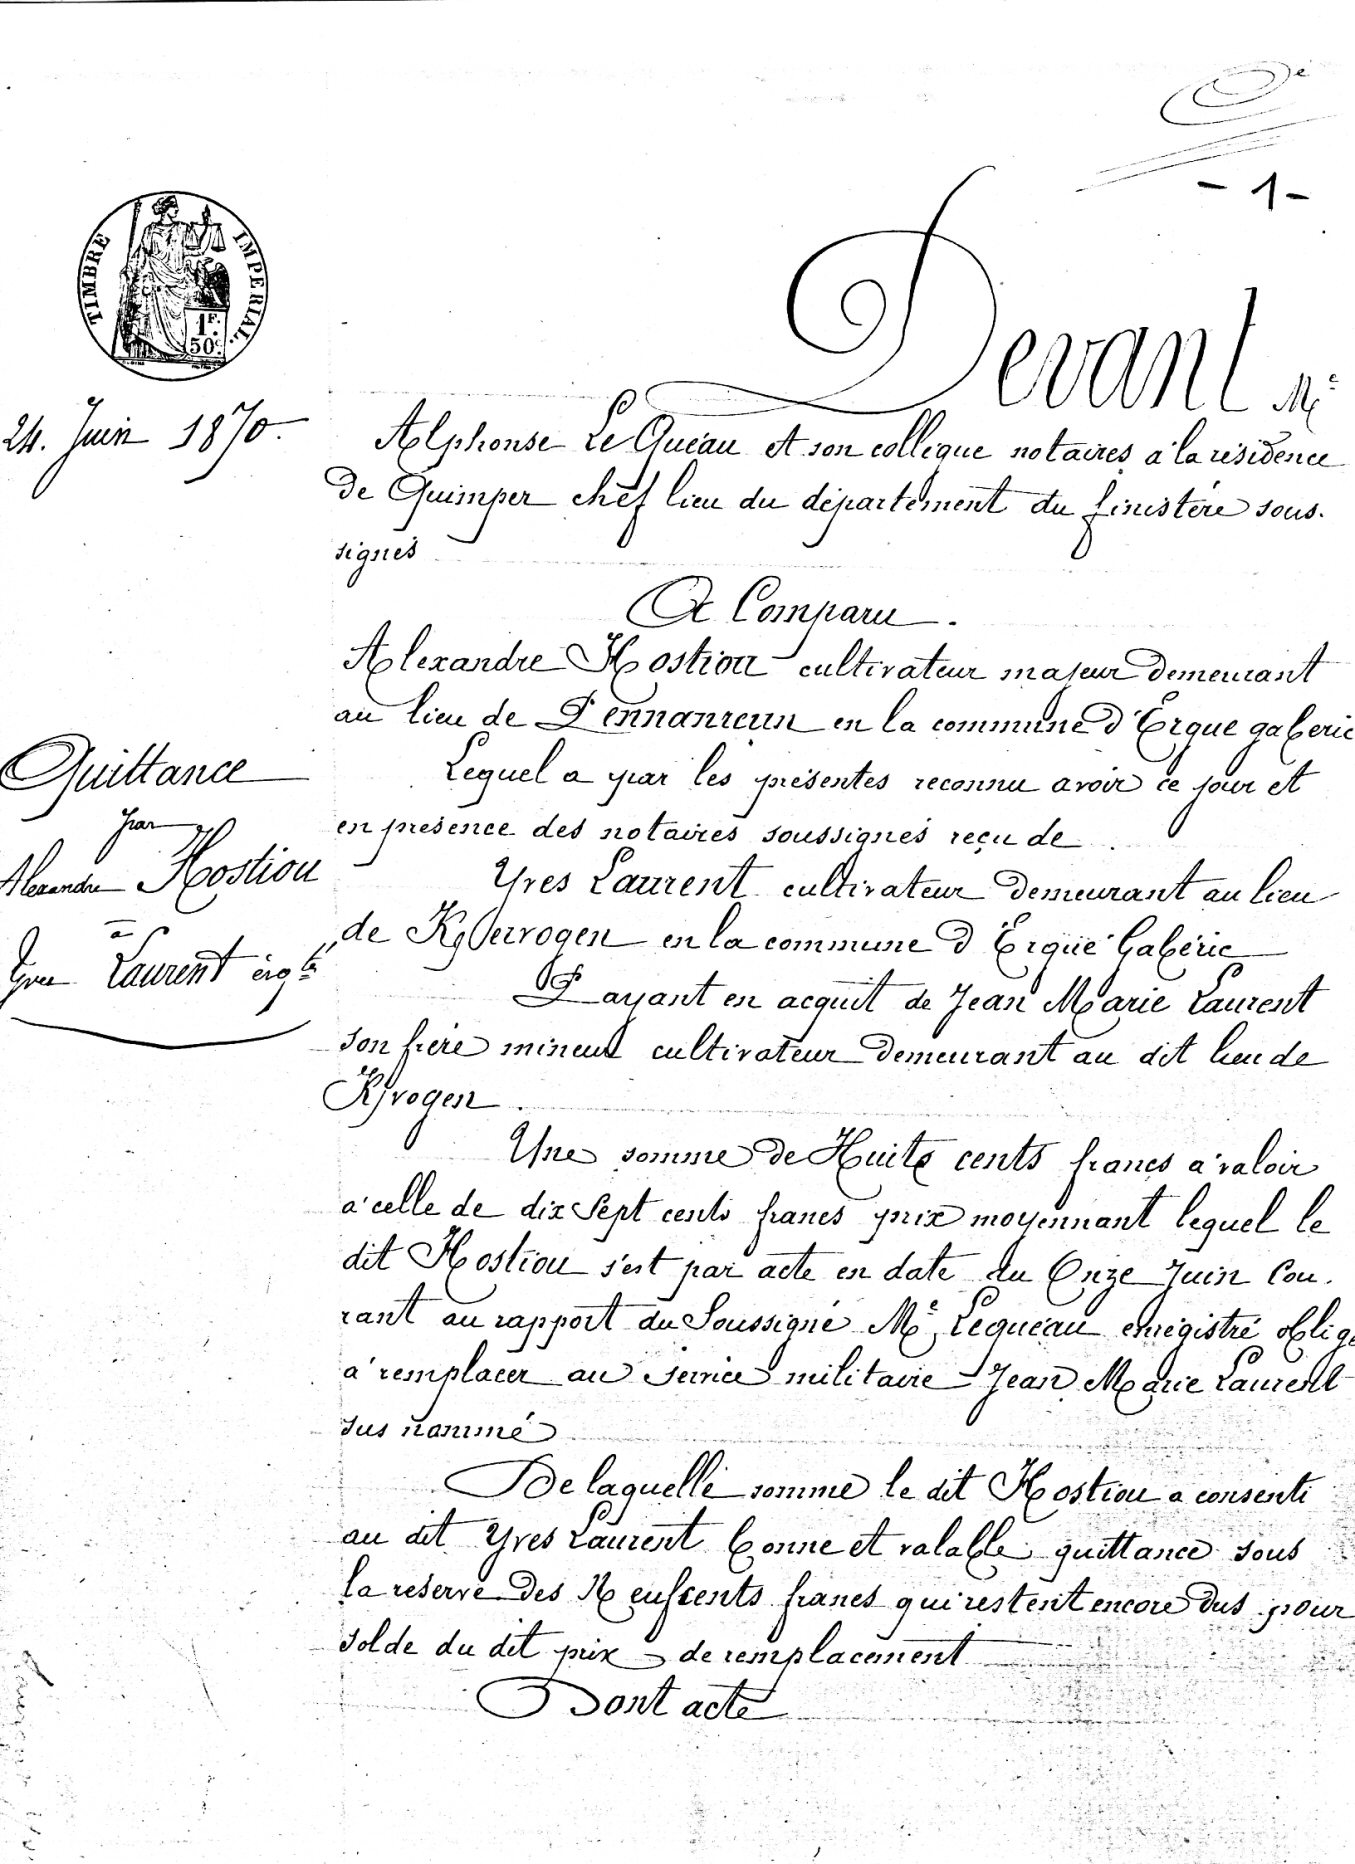 - 1 -
TIMBRE IMPERIAL.
1F.
50c.
Devant Me
24. Juin 1870.
Alphonse Le Quéau et son collègue notaires à la résidence
de Quimper chef lieu du département du finistère sous.
signés
A Comparu.
Alexandre Hostiou cultivateur majeur demeurant
au lieu de Pennanreun en la commune d'Ergue gaberic
Lequel a par les présentes reconnu avoir ce jour et
en présence des notaires soussignés reçu de
Quittance
par
Alexandre Hostiou
à
Yves Laurent érgté
Yves Laurent cultivateur demeurant au lieu
de Kervogen en la commune d'Ergué Gabéric
Payant en acquit de Jean Marie Laurent
son frère mineur cultivateur demeurant au dit lieu de
Kvogen
Une somme de Huits cents francs à valoir
à celle de dix Sept cents francs prix moyennant lequel le
dit Hostiou s'est par acte en date du Onze Juin Cou.
rant au rapport du Soussigné Me Lequéau enregistré oblige
à remplacer au service militaire Jean Marie Laurent
sus nommé
De laquelle somme le dit Hostiou a consenti
au dit Yves Laurent bonne et valable quittance sous
la réserve des Neufcents francs qui restent encore dus pour
solde du dit prix de remplacement
Dont acte